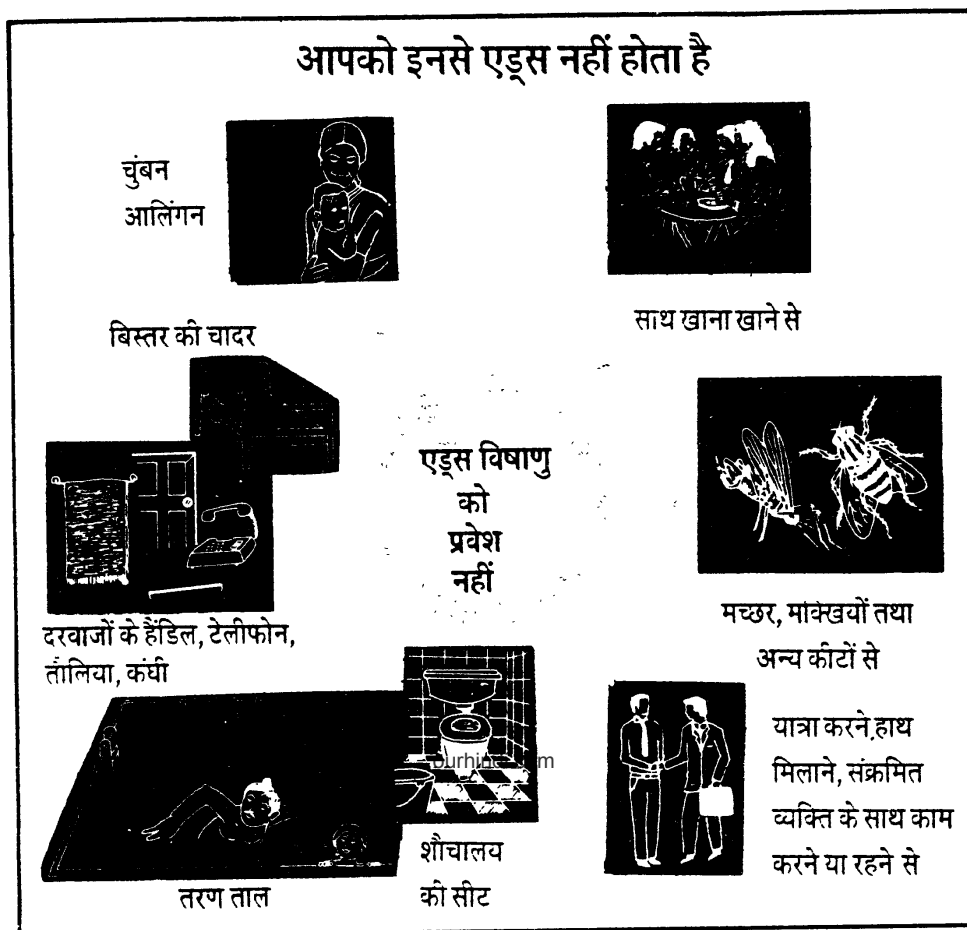 आपको इनसे एड्स नहीं होता है
चुंबन
आलिंगन
साथ खाना खाने से
बिस्तर की चादर
एड्स विषाणु
को
प्रवेश
नहीं
दरवाजों के हैंडिल, टेलीफोन,
तौलिया, कंघी
मच्छर, मक्खियों तथा
अन्य कीटों से
यात्रा करने, हाथ
मिलाने, संक्रमित
व्यक्ति के साथ काम
करने या रहने से
शौचालय
की सीट
तरण ताल